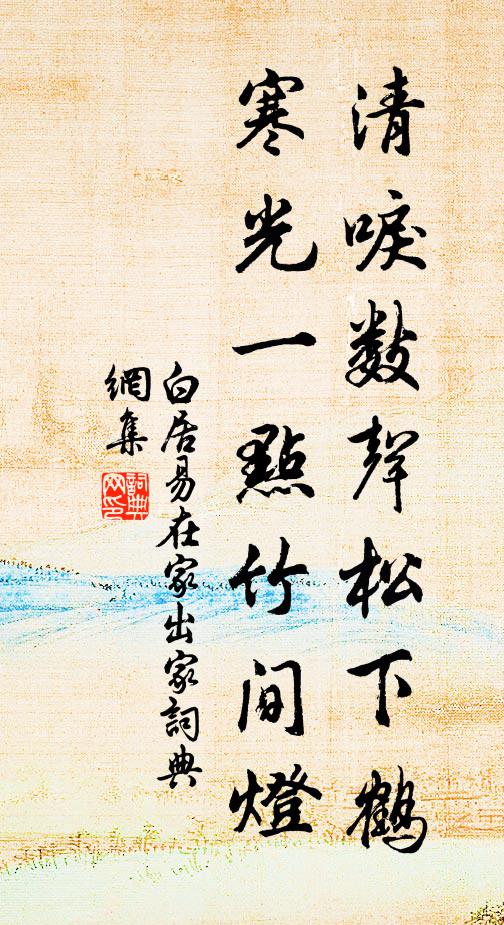 清唳數聲松下鶴
寒光一點竹間燈
白居易在家出家詞典
網集
詞典
网印